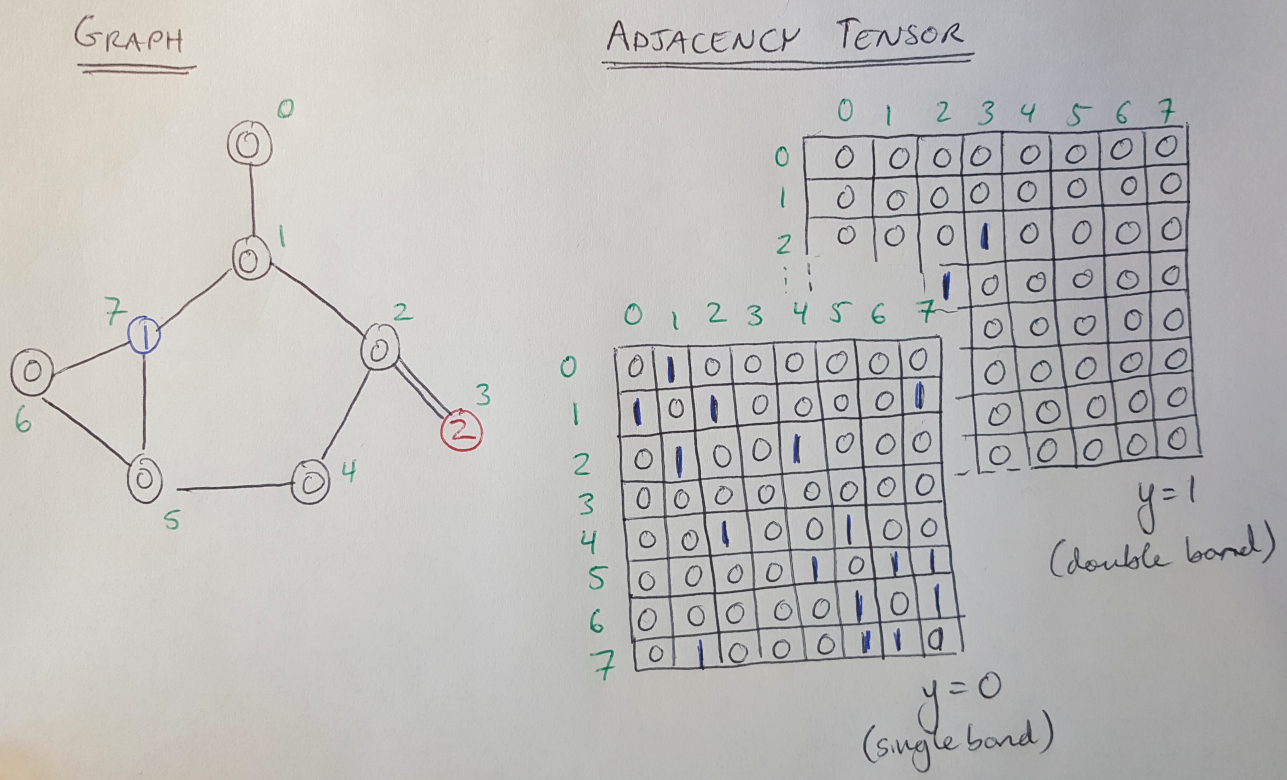 GRAPH
ADJACENCY TENSOR
0
0
0 1
7 1
0 2
0
6
2 3
0
5
0 4
0 1 2 3 4 5 6 7
0 0 0 0 0 0 0 0 0
1 0 0 0 0 0 0 0 0
2 0 0 0 1 0 0 0 0
1 0 0 0 0 0
0 0 0 0 0
0 0 0 0 0
0 0 0 0 0
0 0 0 0 0
y=1
(double bond)
0 1 2 3 4 5 6 7
0 0 1 0 0 0 0 0 0
1 1 0 1 0 0 0 0 1
2 0 1 0 0 1 0 0 0
3 0 0 0 0 0 0 0 0
4 0 0 1 0 0 1 0 0
5 0 0 0 0 1 0 1 1
6 0 0 0 0 0 1 0 1
7 0 1 0 0 0 1 1 0
y=0
(single bond)